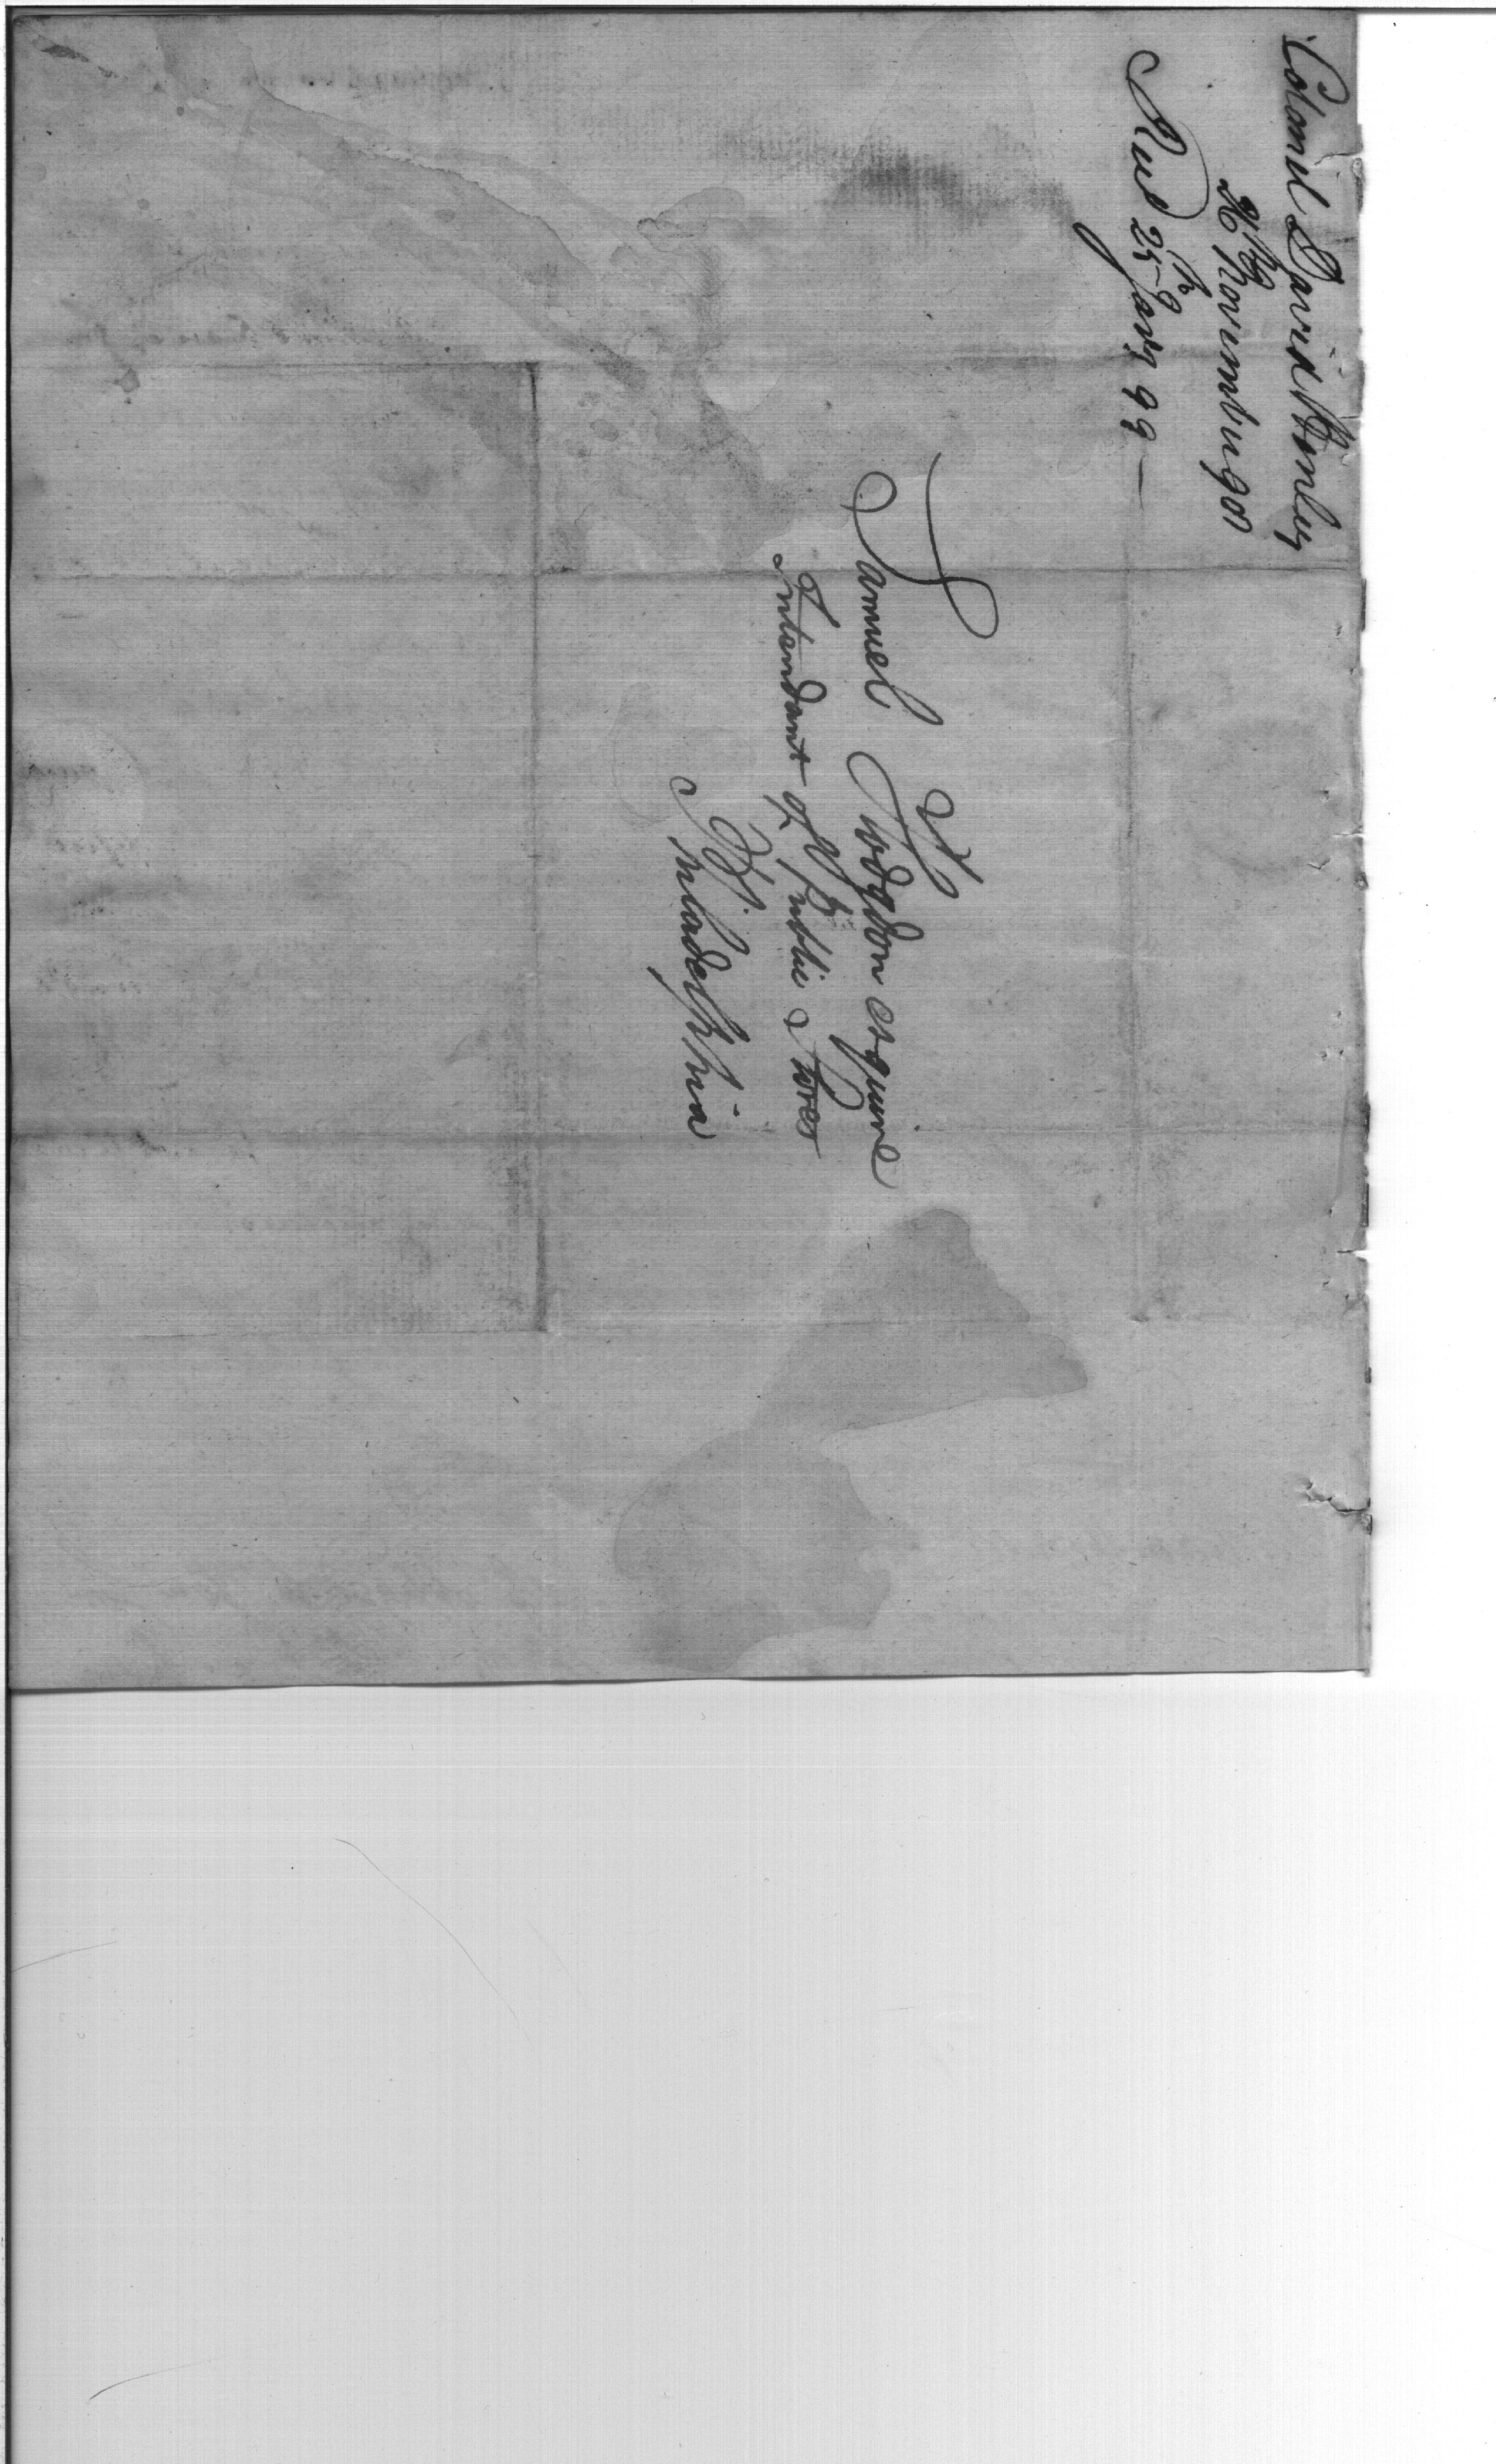 Colonel David Henley
26th November 98
Recd 25th Jany 99 —
Samuel Hodgdon esquire
Intendant of Public Stores
Philadelphia